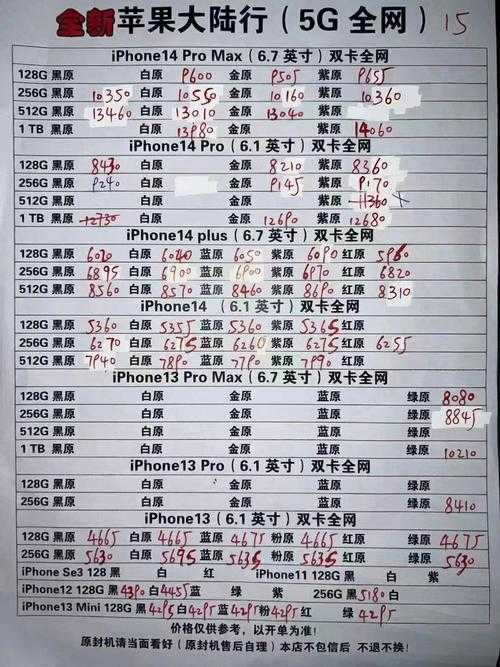 全新苹果大陆行（5G 全网） 15
iPhone14 Pro Max（6.7 英寸）双卡全网
128G 黑原 白原 P600 金原 P505 紫原 P655
256G 黑原 10350 白原 10550 金原 10160 紫原 10360
512G 黑原 13460 白原 13010 金原 13040 紫原
1 TB 黑原 白原 13980 金原 紫原 14060
iPhone14 Pro（6.1 英寸）双卡全网
128G 黑原 8430 白原 金原 8210 紫原 8360
256G 黑原 P240 白原 金原 P145 紫原 P170
512G 黑原 白原 金原 紫原 11360 X
1 TB 黑原 12730 白原 金原 12690 紫原 12680
iPhone14 plus（6.7 英寸）双卡全网
128G 黑原 6020 白原 6040 蓝原 6050 紫原 6090 红原 5960
256G 黑原 6895 白原 6900 蓝原 6900 紫原 6970 红原 6820
512G 黑原 8560 白原 8570 蓝原 8460 紫原 8690 红原 8310
iPhone14 （6.1 英寸）双卡全网
128G 黑原 5360 白原 5355 蓝原 5360 紫原 5365 红原
256G 黑原 6270 白原 6275 蓝原 6260 紫原 6275 红原 6255
512G 黑原 7940 白原 7890 蓝原 7790 紫原 7990 红原
iPhone13 Pro Max（6.7 英寸）双卡全网
128G 黑原 白原 金原 蓝原 绿原 8080
256G 黑原 白原 金原 蓝原 绿原 8845
512G 黑原 白原 金原 蓝原 绿原
1 TB 黑原 白原 金原 蓝原 绿原 10210
iPhone13 Pro（6.1 英寸）双卡全网
128G 黑原 白原 金原 蓝原 绿原
256G 黑原 白原 金原 蓝原 绿原 8410
iPhone13（6.1 英寸）双卡全网
128G 黑原 4665 白原 4665 蓝原 4675 粉原 4665 红原 绿原 4675
256G 黑原 5630 白原 5695 蓝原 5635 粉原 5630 红原 绿原 5630
iPhone Se3 128 黑 白 红 iPhone11 128G 黑 白 紫
iPhone12 128G 黑 4390 白 4445 蓝 红 绿 紫 256G 黑 5180 白
iPhone13 Mini 128G 黑 4295 白 4295 蓝 4295 粉 4295 红 绿 4295
价格仅供参考，以开单为准!
原封机请当面看好（原封机售后自理）本店不包信后 不退不换!